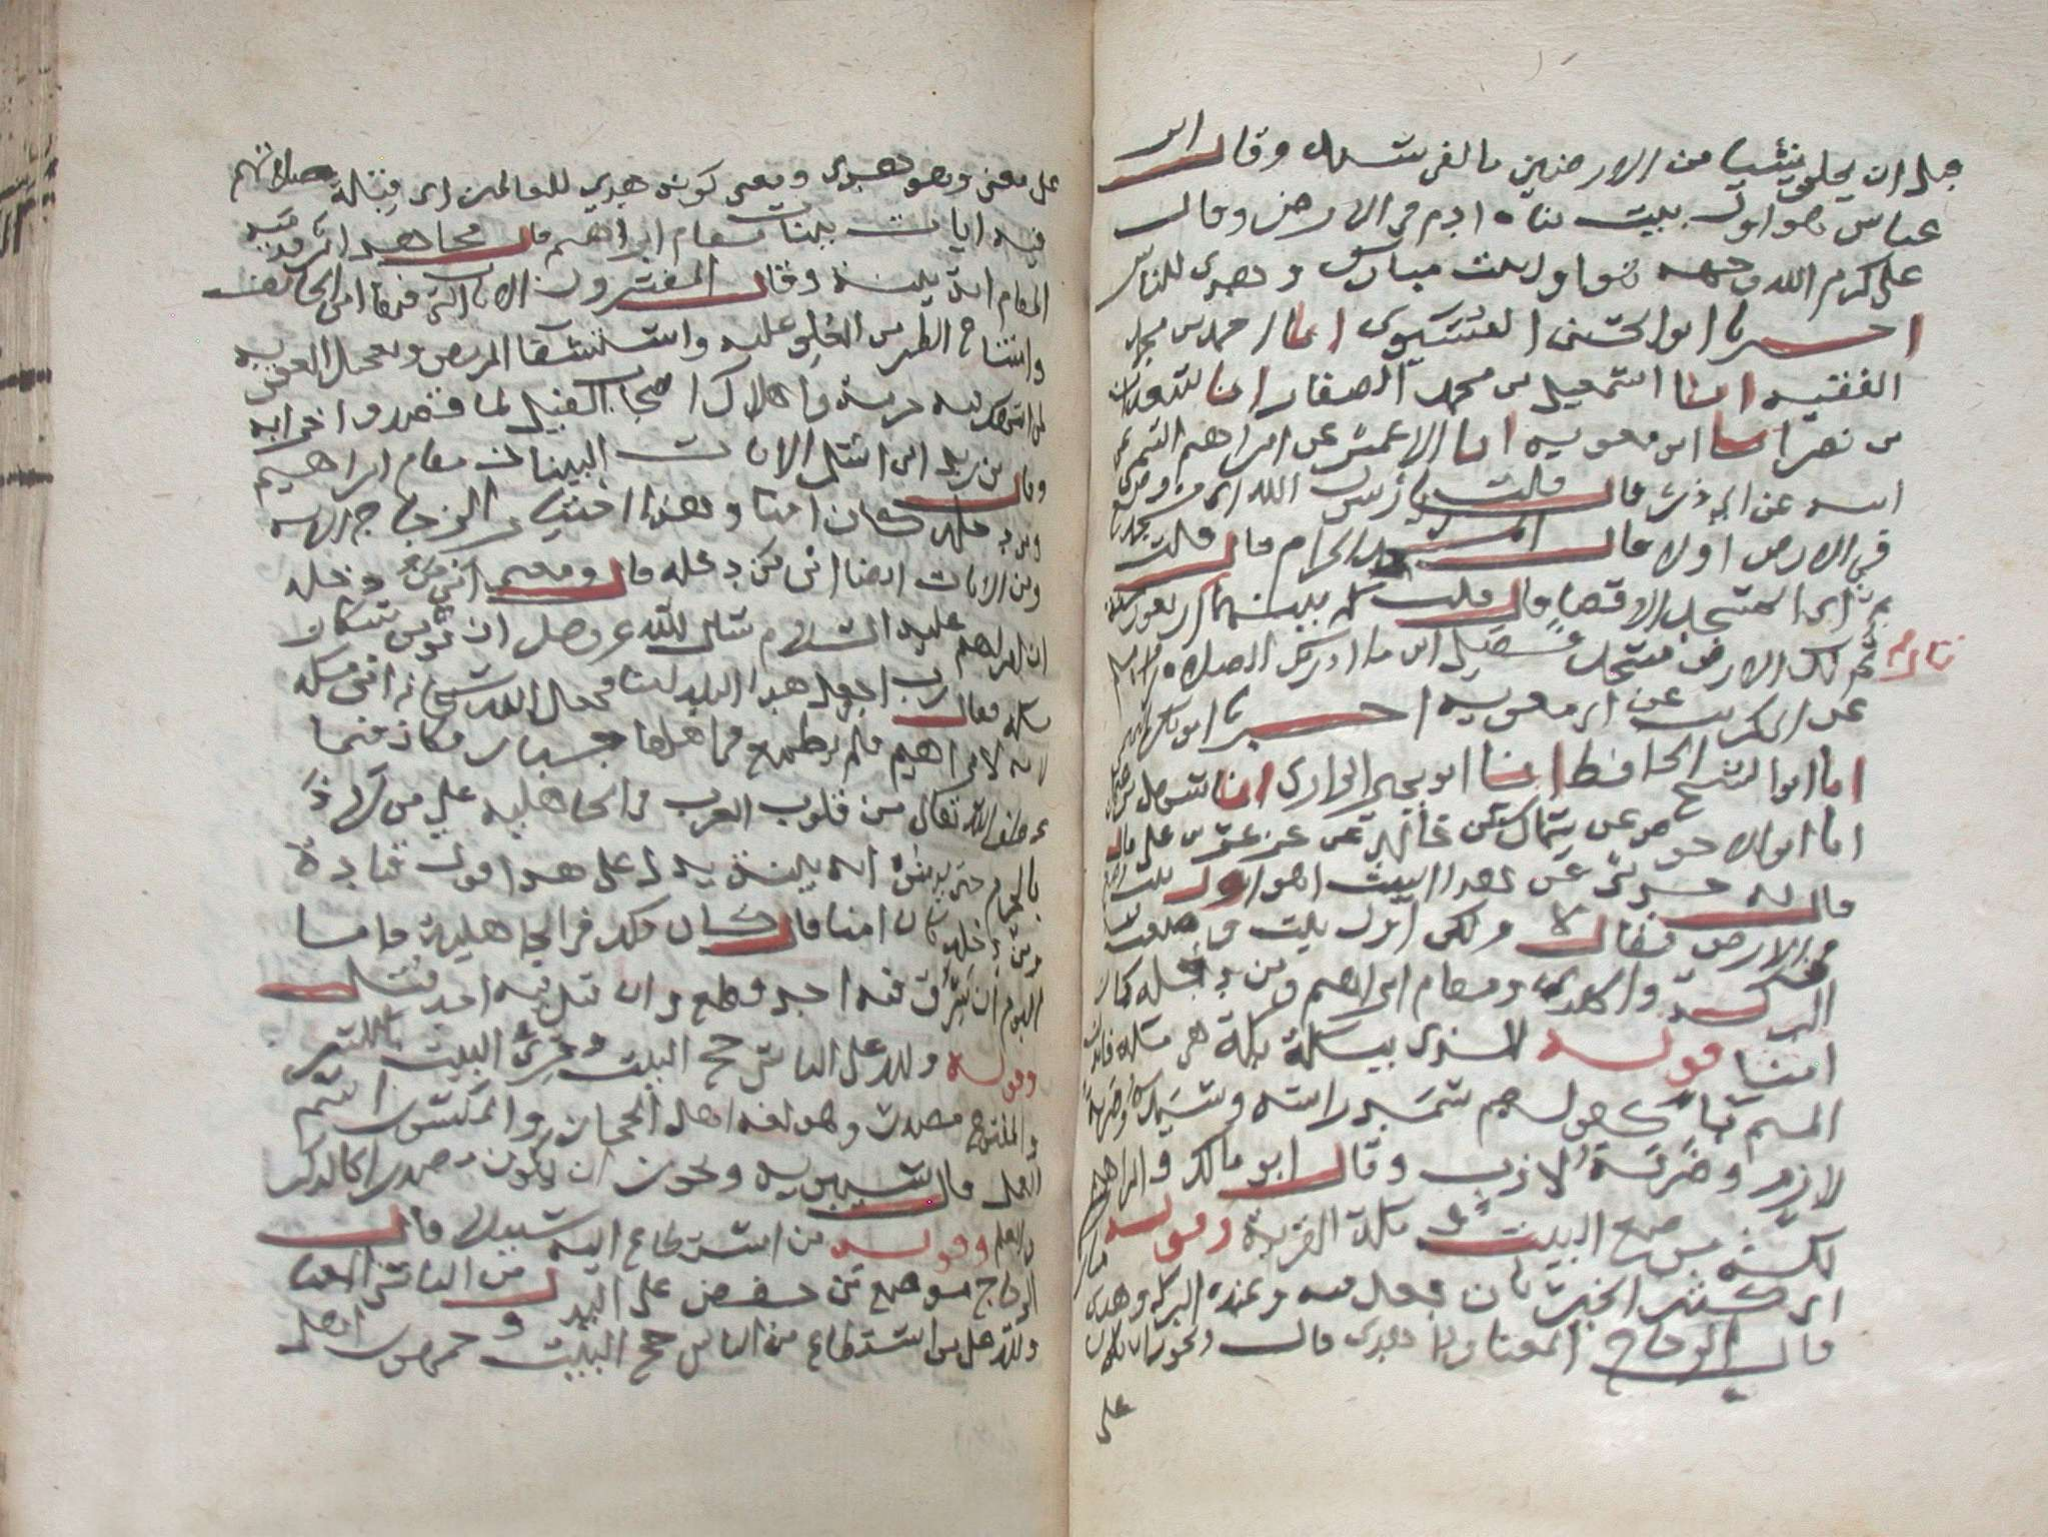 قبل ان يخلق شيا من الارضين بالفي سنه وقال ابن
عباس هو اول بيت بناه ادم في الارض وقال
علي كرم الله وجهه هو اول بيت مبارك وهدى للناس
اخبرنا ابوا الحسن انا احمد بن محمد
الفقيه انبا اسمعيل بن محمد الصفار انبا سعدان
بن نصر انبا ابن معويه انبا الاعمش عن ابراهيم التيمي عن
ابيه عن ابي ذر قال قلت يا رسول الله اي مسجد وضع
في الارض اولا قال المسجد الحرام قال قلت
ثم اي قال المسجد الاقصا قال قلت كم بينهما قال اربعون سنه
ثم لك الارض مسجد فصل اين ما ادركتك الصلاه رواه مسلم
عن ابي كريب عن ابي معويه اخبرنا ابو بكر
انا ابوا الشيخ الحافظ انبا ابو يحيى الرازي انبا سهل بن
انا ابوالاحوص عن سماك عن خالد بن عرعره عن علي قال
قال له رجل عن هذا البيت اهو اول بيت
في الارض فقال لا ولكن اول بيت وضعت
فيه البركة والهدى ومقام ابراهيم ومن دخله كان
امنا قوله للذي ببكة بكة هي مكه
الميم كقولهم سمد راسه وسبده وضربة
لازم وضربة لازب وقال ابو مالك وابراهيم
بكة موضع البيت ومكة القرية وقوله مباركا
اي كثير الخير بان جعل فيه وعنده البركه وهدى
قال الزجاج المعنا وذا هدى قال ويجوز ان يكون
على
على معنى وهو هدى ومعنى كونه هدي للعالمين اي قبلة صلاتهم
فيه ايات بينات مقام ابراهيم قال مجاهد اثر قدميه
في المقام اية بينة وقال المفسرون الايات التي فيها امن الخائف
وامتناع الطير من العلو عليه واستشفا المريض وتعجيل العقوبه
لمن انتهك فيه حرمة واهلاك اصحاب الفيل لما قصدوا اخرابه
وقال ابن الايات البينات مقام ابراهيم
ومن دخله كان امنا وهذا اختيار الزجاج
ومن الايات ايضا امن من دخله قال ومعنى امن من دخله
ان ابراهيم عليه السلام سال الله عز وجل ان يؤمن سكان
مكه فقال رب اجعل هذا البلد امنا فجعل الله سبحانه امن مكه
اية لابراهيم فلم يطمع في اهلها جبار وكان فيما
عطف الله تعالى من قلوب العرب في الجاهليه على من
بالحرم حتى يؤمنوه اية بينة يدل على هذا قول قتادة
ومن دخله كان امنا قال كان ذلك في الجاهلية فاما
اليوم ان سرق فيه احد قطع وان قتل فيه احد قتل
وقوله ولله على الناس حج البيت وقرئ البيت بالكسر
والمفتوح مصدر وهو لغة اهل الحجاز والمكسور اسم
العمل قال سيبويه ويجوز ان يكون مصدرا كالذكر
والعلم وقوله من استطاع اليه سبيلا قال
الزجاج موضع من خفض على البدل من الناس المعنا
ولله على من استطاع من الناس حج البيت